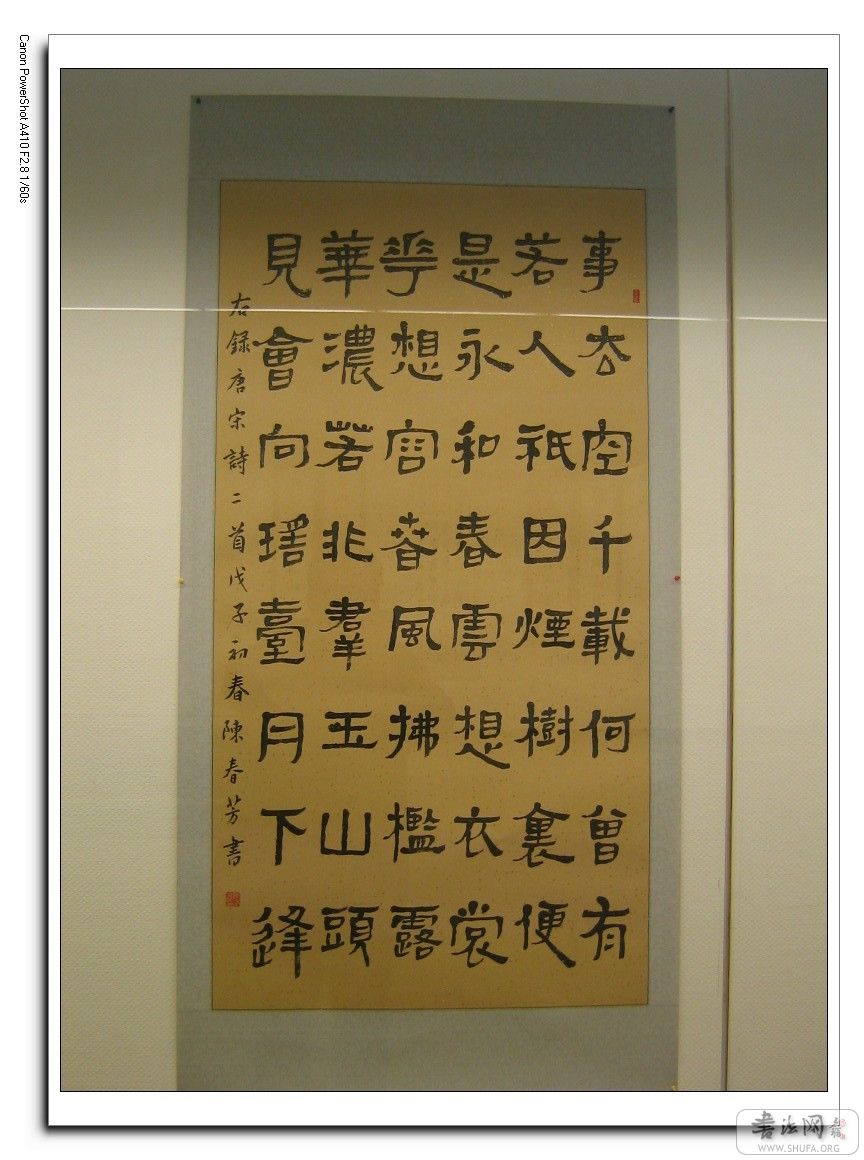 事去空千載何曾有
若人祇因煙樹裏便
是永和春雲想衣裳
花想容春風拂檻露
華濃若非羣玉山頭
見會向瑤臺月下逢
右録唐宋詩二首戊子初春陳春芳書
Canon PowerShot A410 F2.8 1/60s
書法网
WWW.SHUFA.ORG